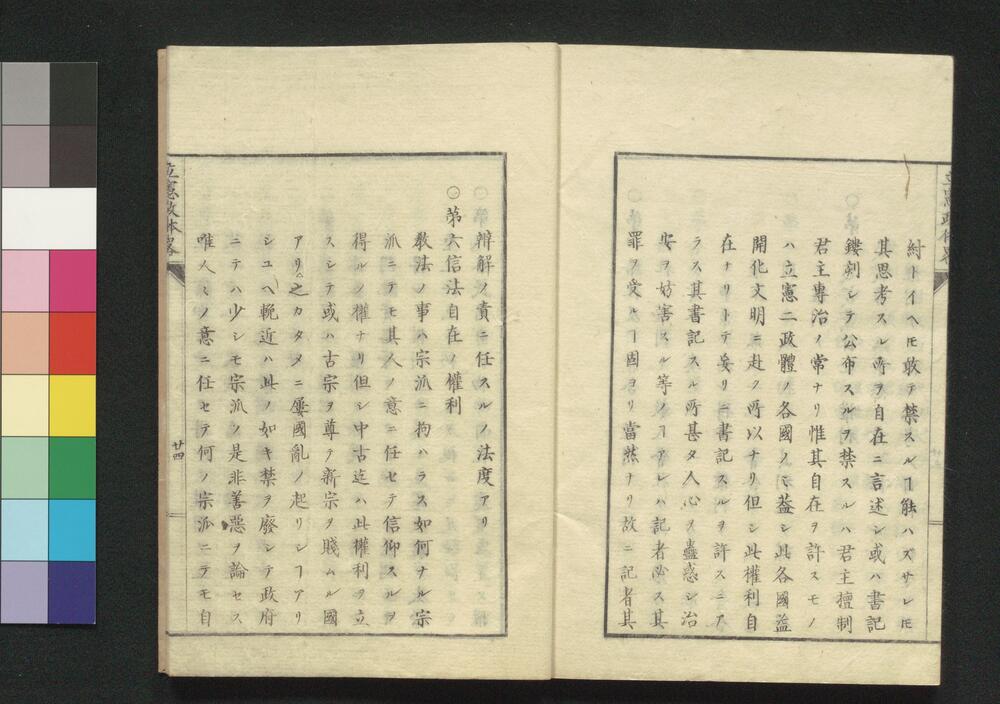 紂トイヘ𪜈敢テ禁スルヿ能ハズサレ𪜈
其思考スル所ヲ自在ニ言述シ或ハ書記
鏤刻シテ公布スルヲ禁スルハ君主擅制
君主專治ノ常ナリ惟其自在ヲ許スモノ
ハ立憲二政體ノ各國ノミ蓋シ此各國益
開化文明ニ赴ク所以ナリ但シ此權利自
在ナリトテ妄リニ書記スルヲ許スニア
ラス其書記スル所甚タ人心ヲ蠱惑シ治
安ヲ妨害スル等ノヿアレハ記者必ス其
罪ヲ受ルヿ固ヨリ當然ナリ故ニ記者其
辯解ノ責ニ任スルノ法度アリ
○第六信法自在ノ權利
教法ノ事ハ宗派ニ拘ハラス如何ナル宗
派ニテモ其人ノ意ニ任セテ信仰スルヲ
得ルノ權ナリ但シ中古迄ハ此權利ヲ立
スシテ或ハ古宗ヲ尊テ新宗ヲ賤ムル國
アリ之カタメニ屢國亂ノ起リシヿアリ
シユヘ輓近ハ此ノ如キ禁ヲ廢シテ政府
ニテハ少シモ宗派ノ是非善惡ヲ論セス
唯人々ノ意ニ任セテ何ノ宗派ニテモ自
立憲政体略
廿四